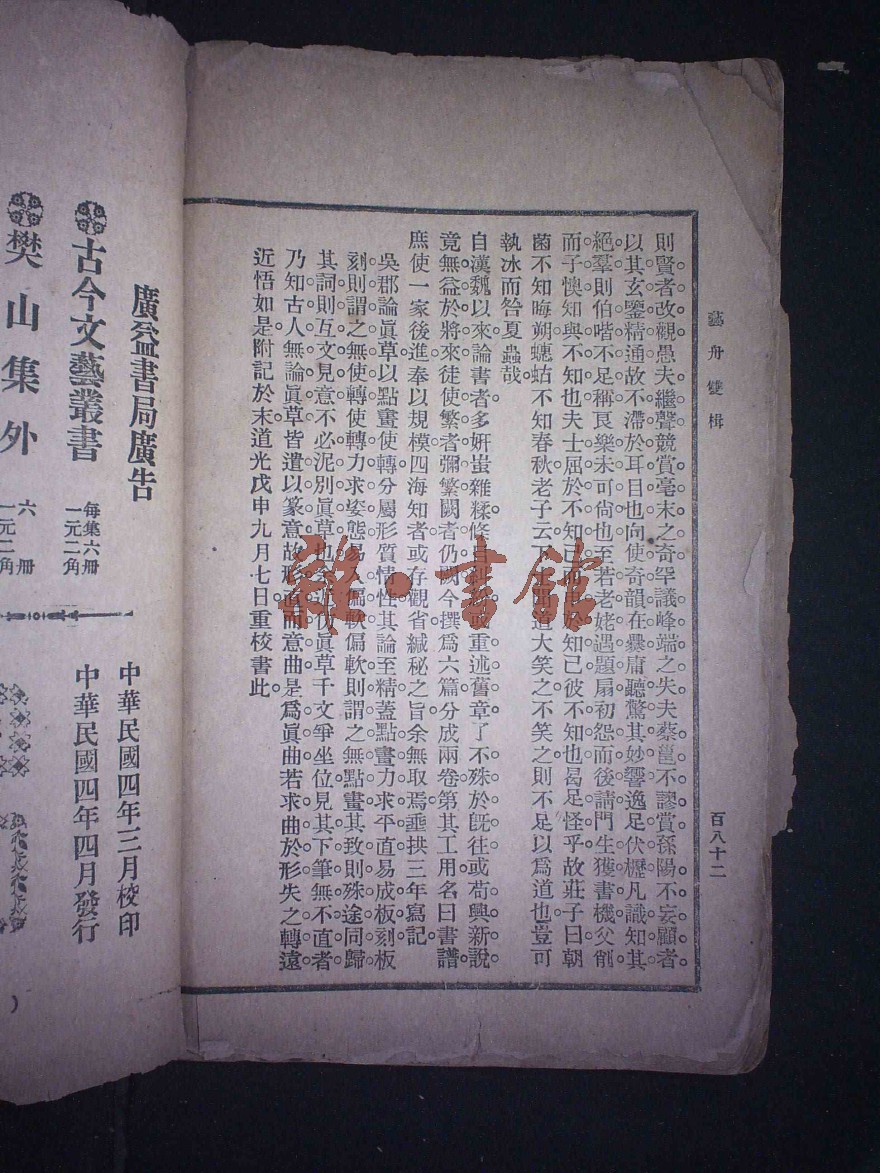 藝舟雙楫
百八十二
則賢者改觀愚夫繼聲競賞毫末之奇罕議峰端之失夫蔡邕不謬賞孫陽不妄顧者
以其玄鑒精通故不滯於耳目也向使奇韻在爨庸聽驚其妙響逸足伏櫪凡識知其
絕羣則伯喈不足稱良樂未可尙也至若老姥遇題扇初怨而後請門生獲書機父削
而子懊知與不知也夫士屈於不知己而 於知己彼不知也曷足怪乎故莊子曰朝
菌不知晦朔蟪蛄不知春秋老子云下士聞道大笑之不笑之則不足以爲道也豈可
執冰而咎夏蟲哉
自漢魏以來論書者多姸蚩雜糅條目糾 或重述舊章了不殊於旣往或苟興新說
竟無益於將來徒使繁者彌繁闕者仍闕今撰爲六篇分成兩卷第其工用名曰書譜
庶使一家後進奉以規模四海知者或存觀省緘秘之旨余無取焉垂拱三年寫記
吳郡論眞草以點畫使轉分屬形質情性其論至精蓋點畫力求平直易成板刻板
刻則謂之無使轉使轉力求姿態易入偏軟偏軟則謂之無點畫其致則殊途同歸
其詞則互文見意不必泥別眞草也余近仿眞草千文爭坐位見其下筆無不直者
乃知古人無論眞草皆遣以篆意故形直而意曲是爲眞曲若求曲於形失之轉遠
近悟如是附記於末道光戊申九月七日重校書此
廣益書局廣告
古今文藝叢書
每集六册
一元二角
樊山集外
六册
一元二角
中華民國四年三月校印
中華民國四年四月發行
雜·書館